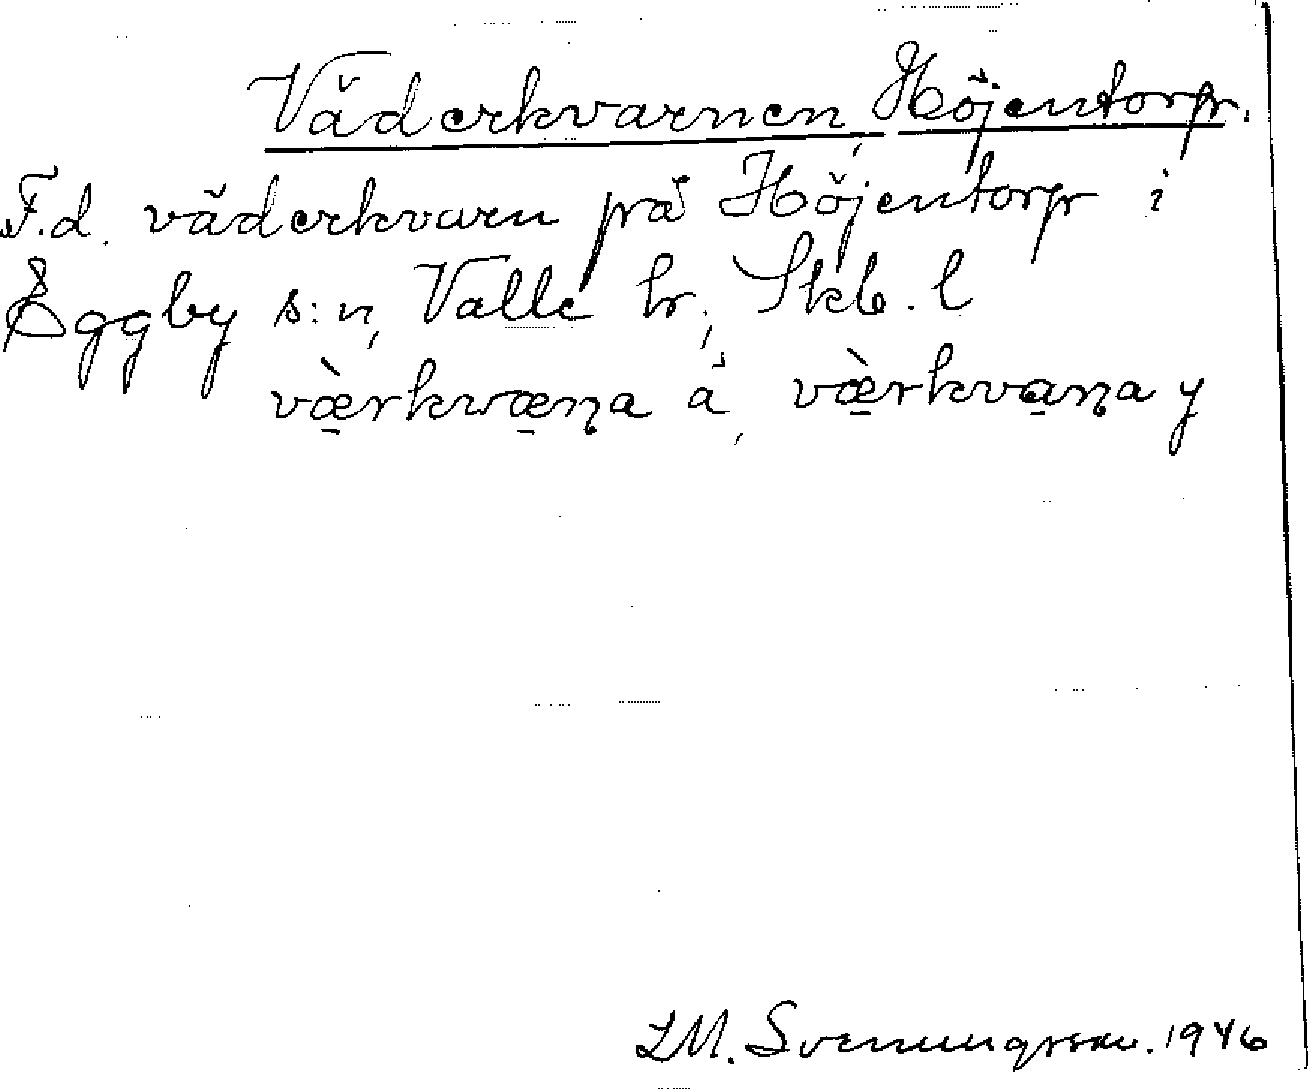 Väderkvarnen, Höjentorp.
F.d. väderkvarn på Höjentorp i
Eggby s:n, Valle hr., Skb. l
væ̀rkwæṇa å, væ̀rkvaṇa y
LM. Svenungsson. 1946